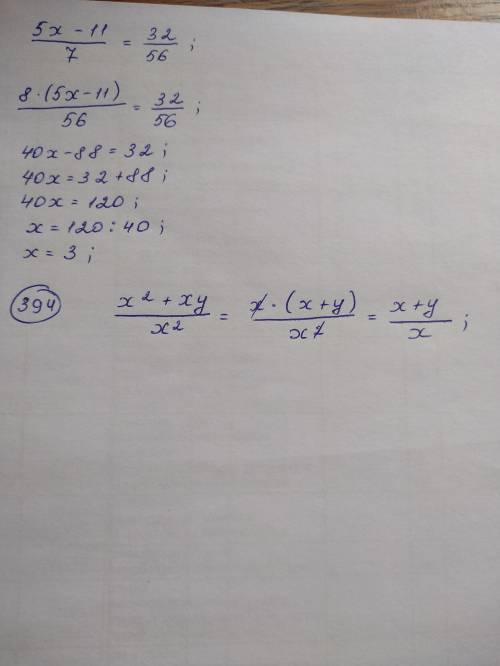 5x - 11 / 7 = 32 / 56 ;
8 · (5x - 11) / 56 = 32 / 56 ;
40x - 88 = 32 ;
40x = 32 + 88 ;
40x = 120 ;
x = 120 : 40 ;
x = 3 ;
394 x² + xy / x² = x · (x + y) / x² = x + y / x ;